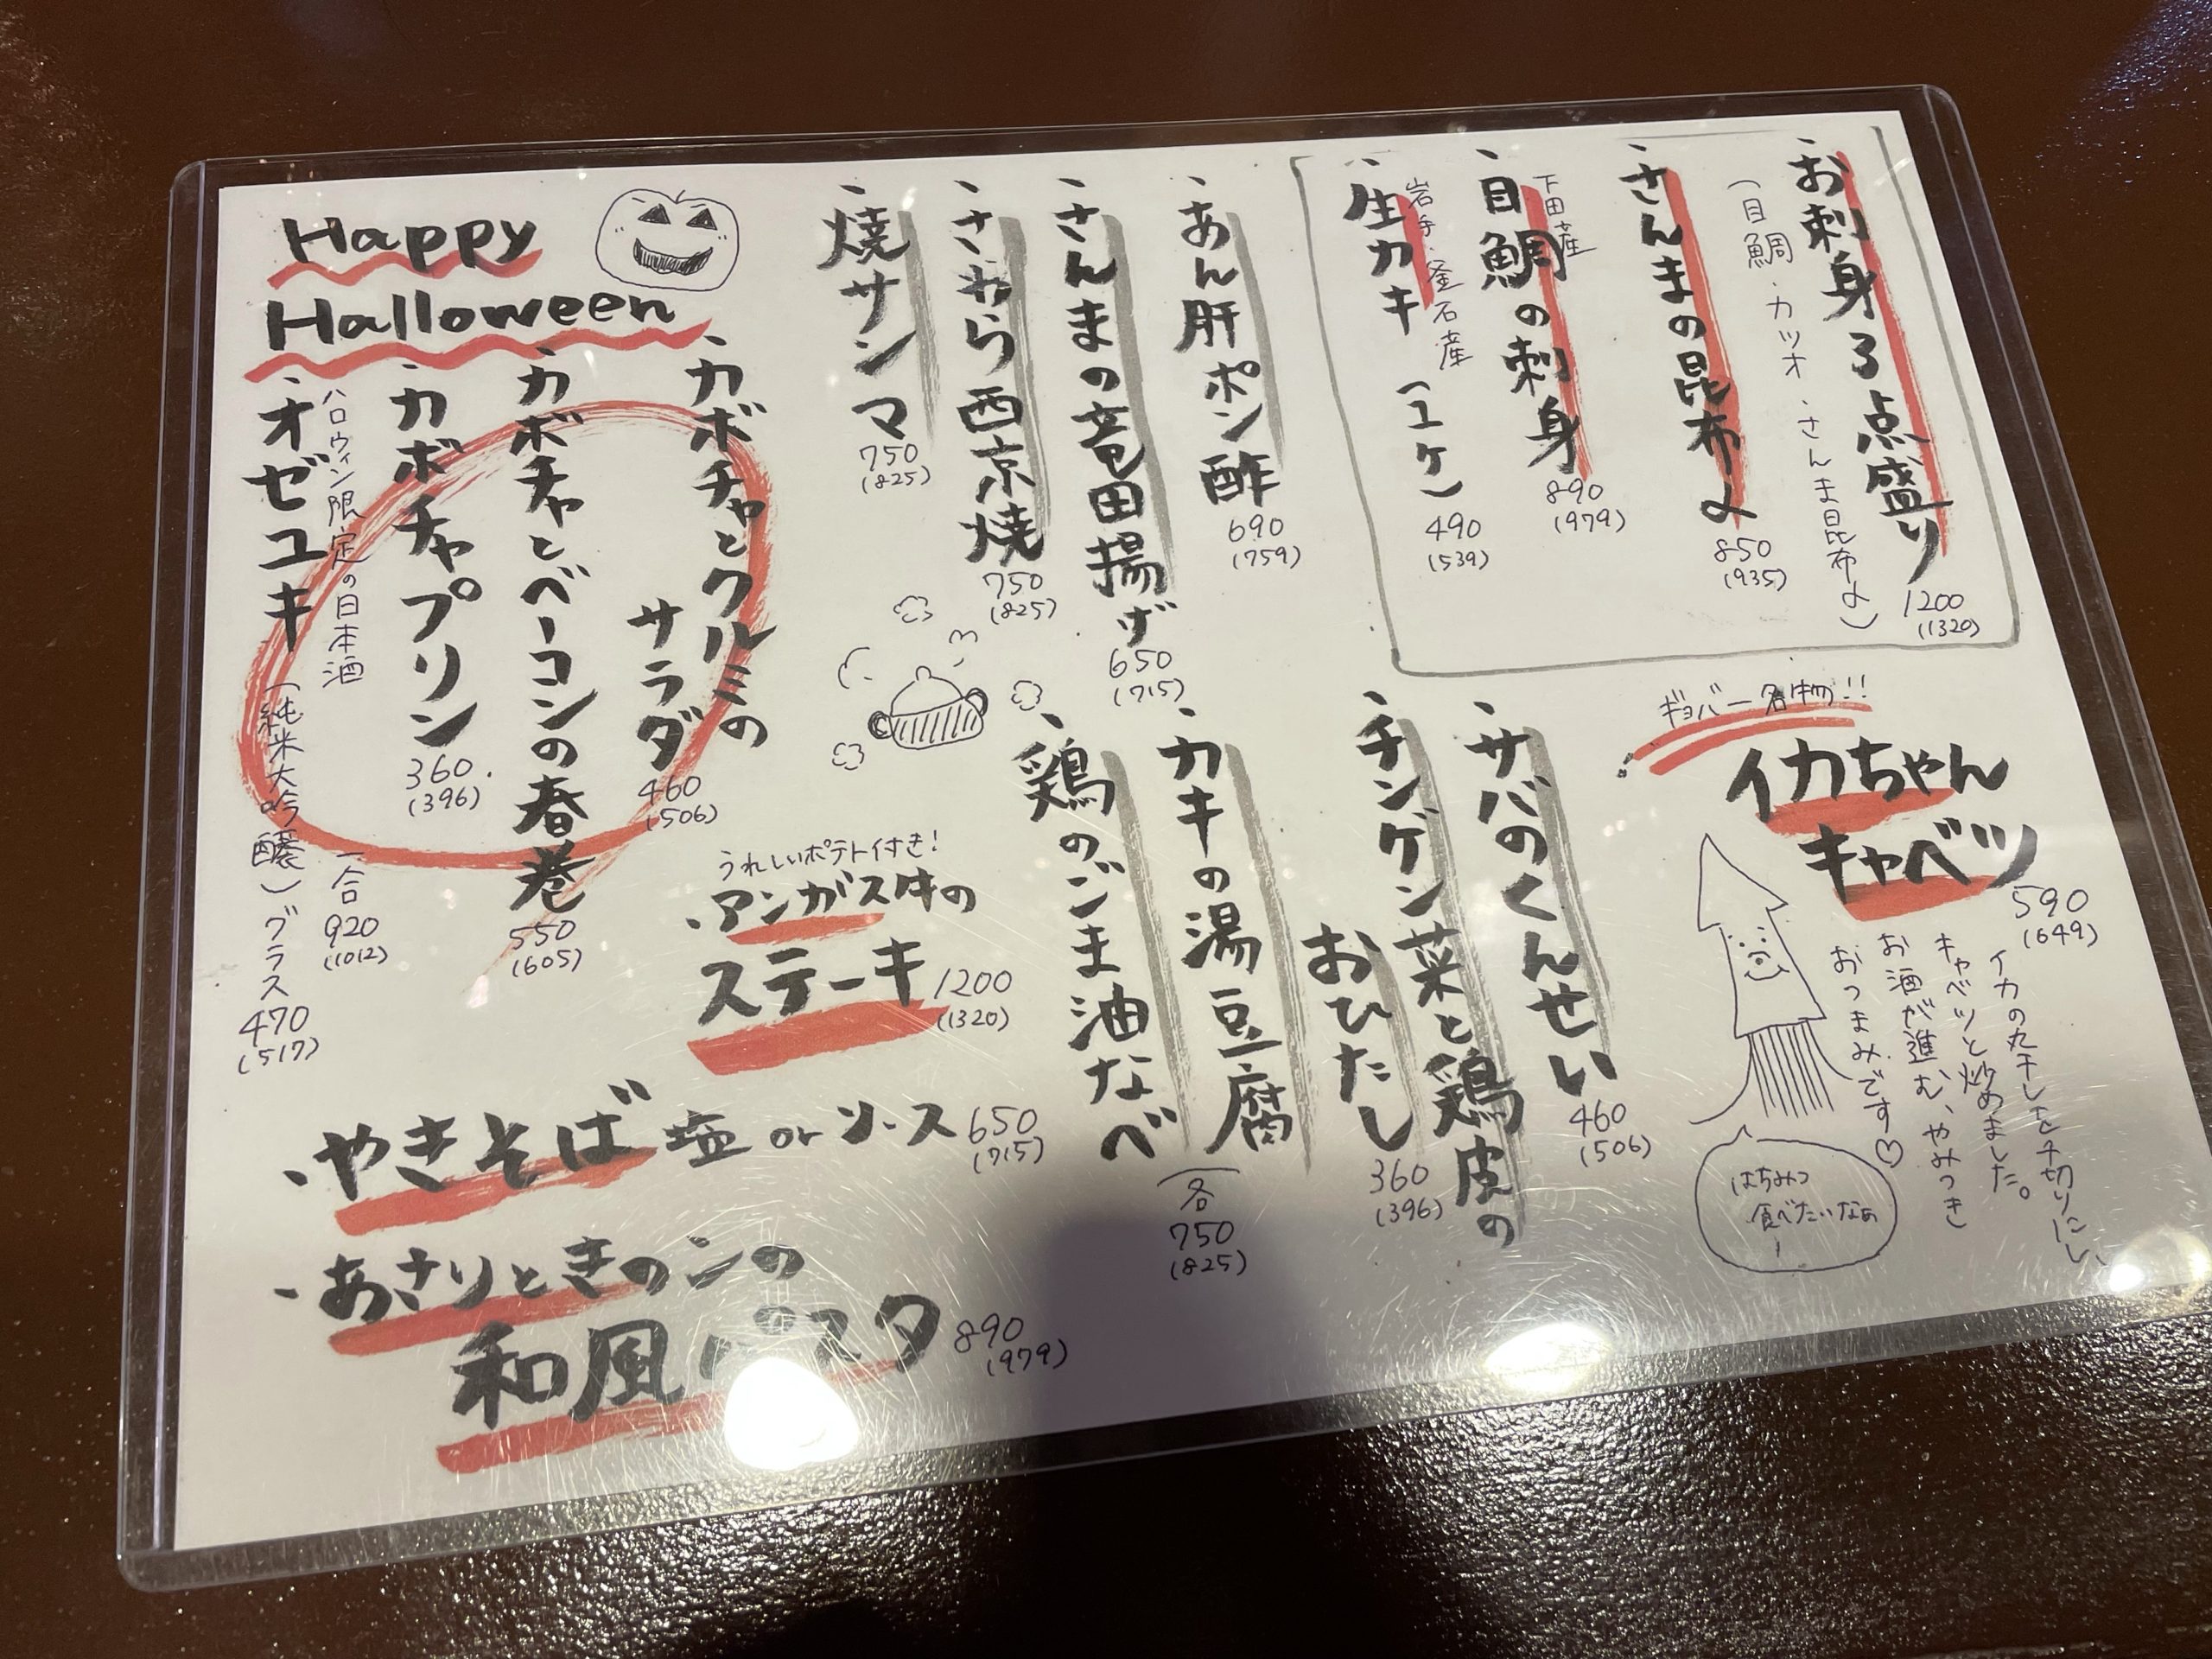 ・お刺身3点盛り
1200
(1320)
(目鯛・カツオ・さんま昆布〆)
・さんまの昆布〆
850
(935)
下田産
・目鯛の刺身
890
(979)
岩手・釜石産
・生カキ(1ケ)
490
(539)
・あん肝ポン酢
690
(759)
・さんまの竜田揚げ
650
(715)
・さわら西京焼
750
(825)
・焼サンマ
750
(825)
ギョバー名物!!
・イカちゃん
キャベツ
590
(649)
イカの丸干しを千切りにし、
キャベツと炒めました。
お酒が進む、やみつき
おつまみです♡
はちみつ
食べたいなぁ
ー
・サバのくんせい
460
(506)
・チンゲン菜と鶏皮の
おひたし
360
(396)
・カキの湯豆腐
・鶏のごま油なべ
各
750
(825)
Happy
Halloween
・カボチャとクルミの
サラダ
460
(506)
・カボチャとベーコンの春巻
550
(605)
・カボチャプリン
360.
(396)
ハロウィン限定の日本酒
・オゼユキ
(純米大吟醸)
一合
920
(1012)
グラス
470
(517)
うれしいポテト付き!
・アンガス牛の
ステーキ 1200
(1320)
・やきそば 塩 or ソース 650
(715)
・あさりときのこの
和風パスタ 890
(979)